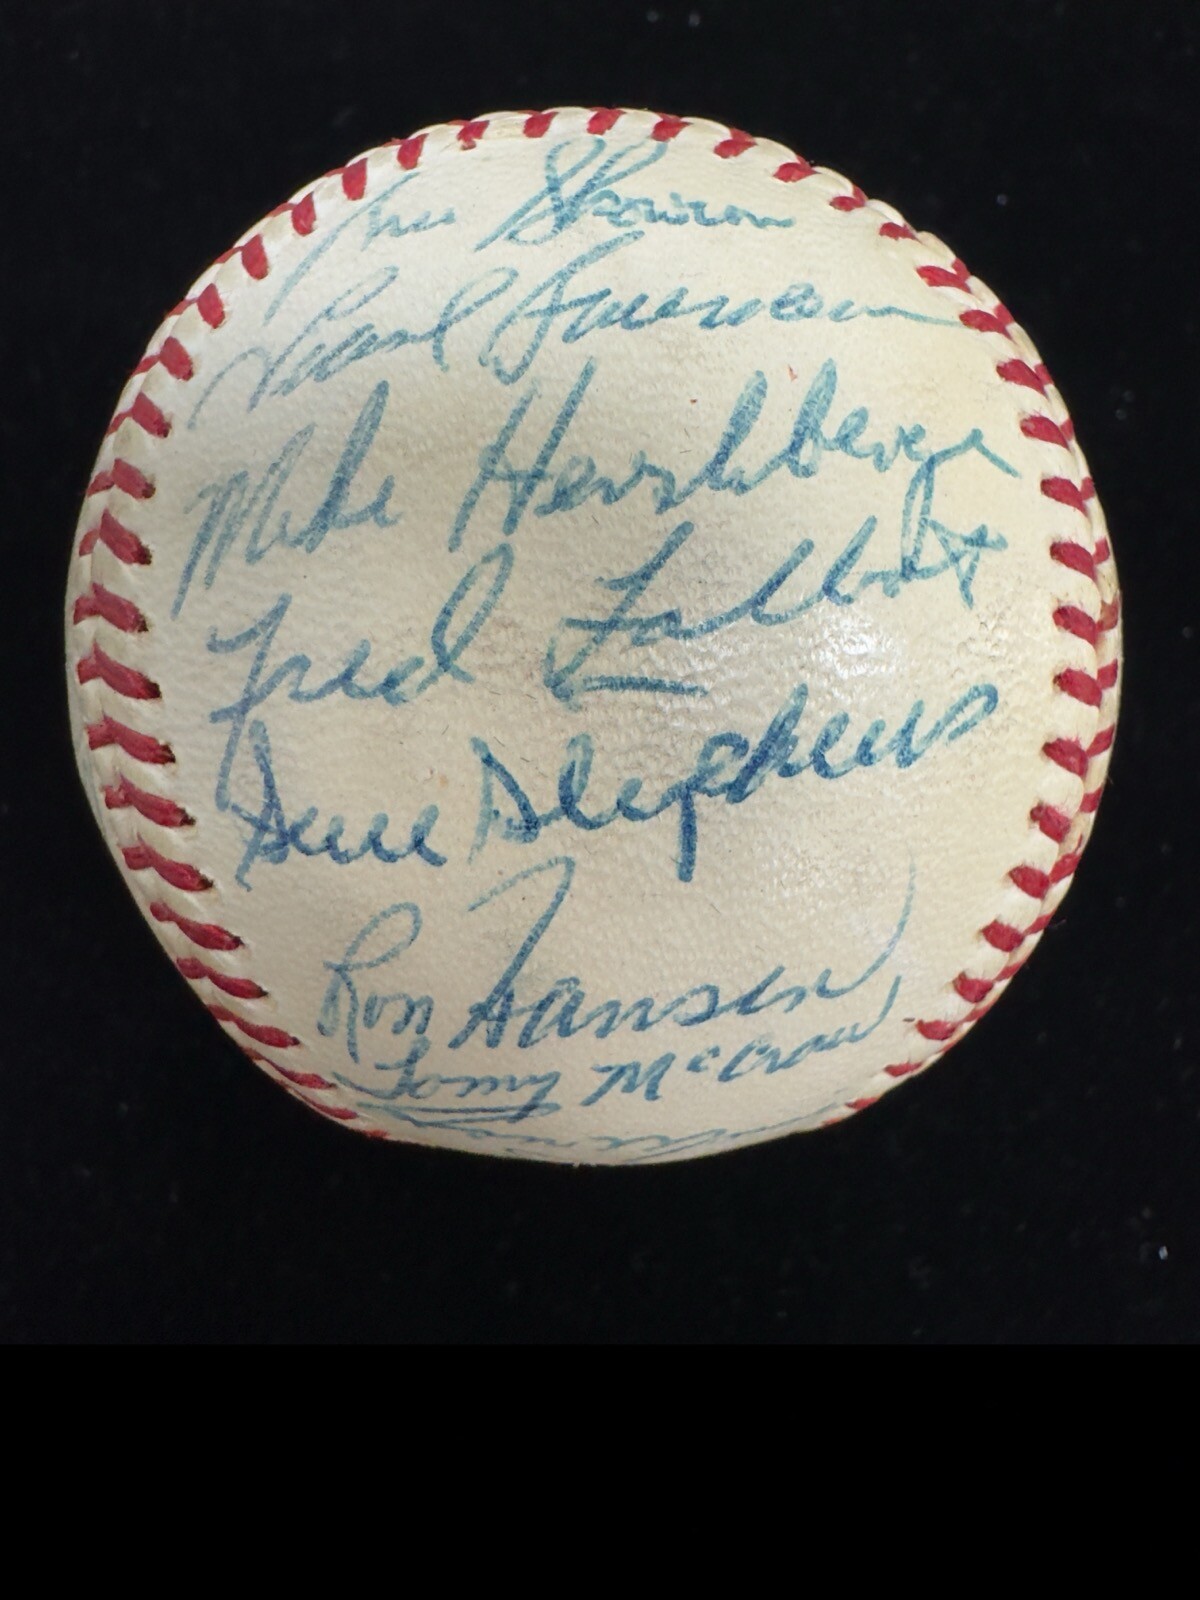 Moose Skowron
Mike Hershberger
Fred Talbot
Gene Stephens
Ron Hansen
Tommy McCraw